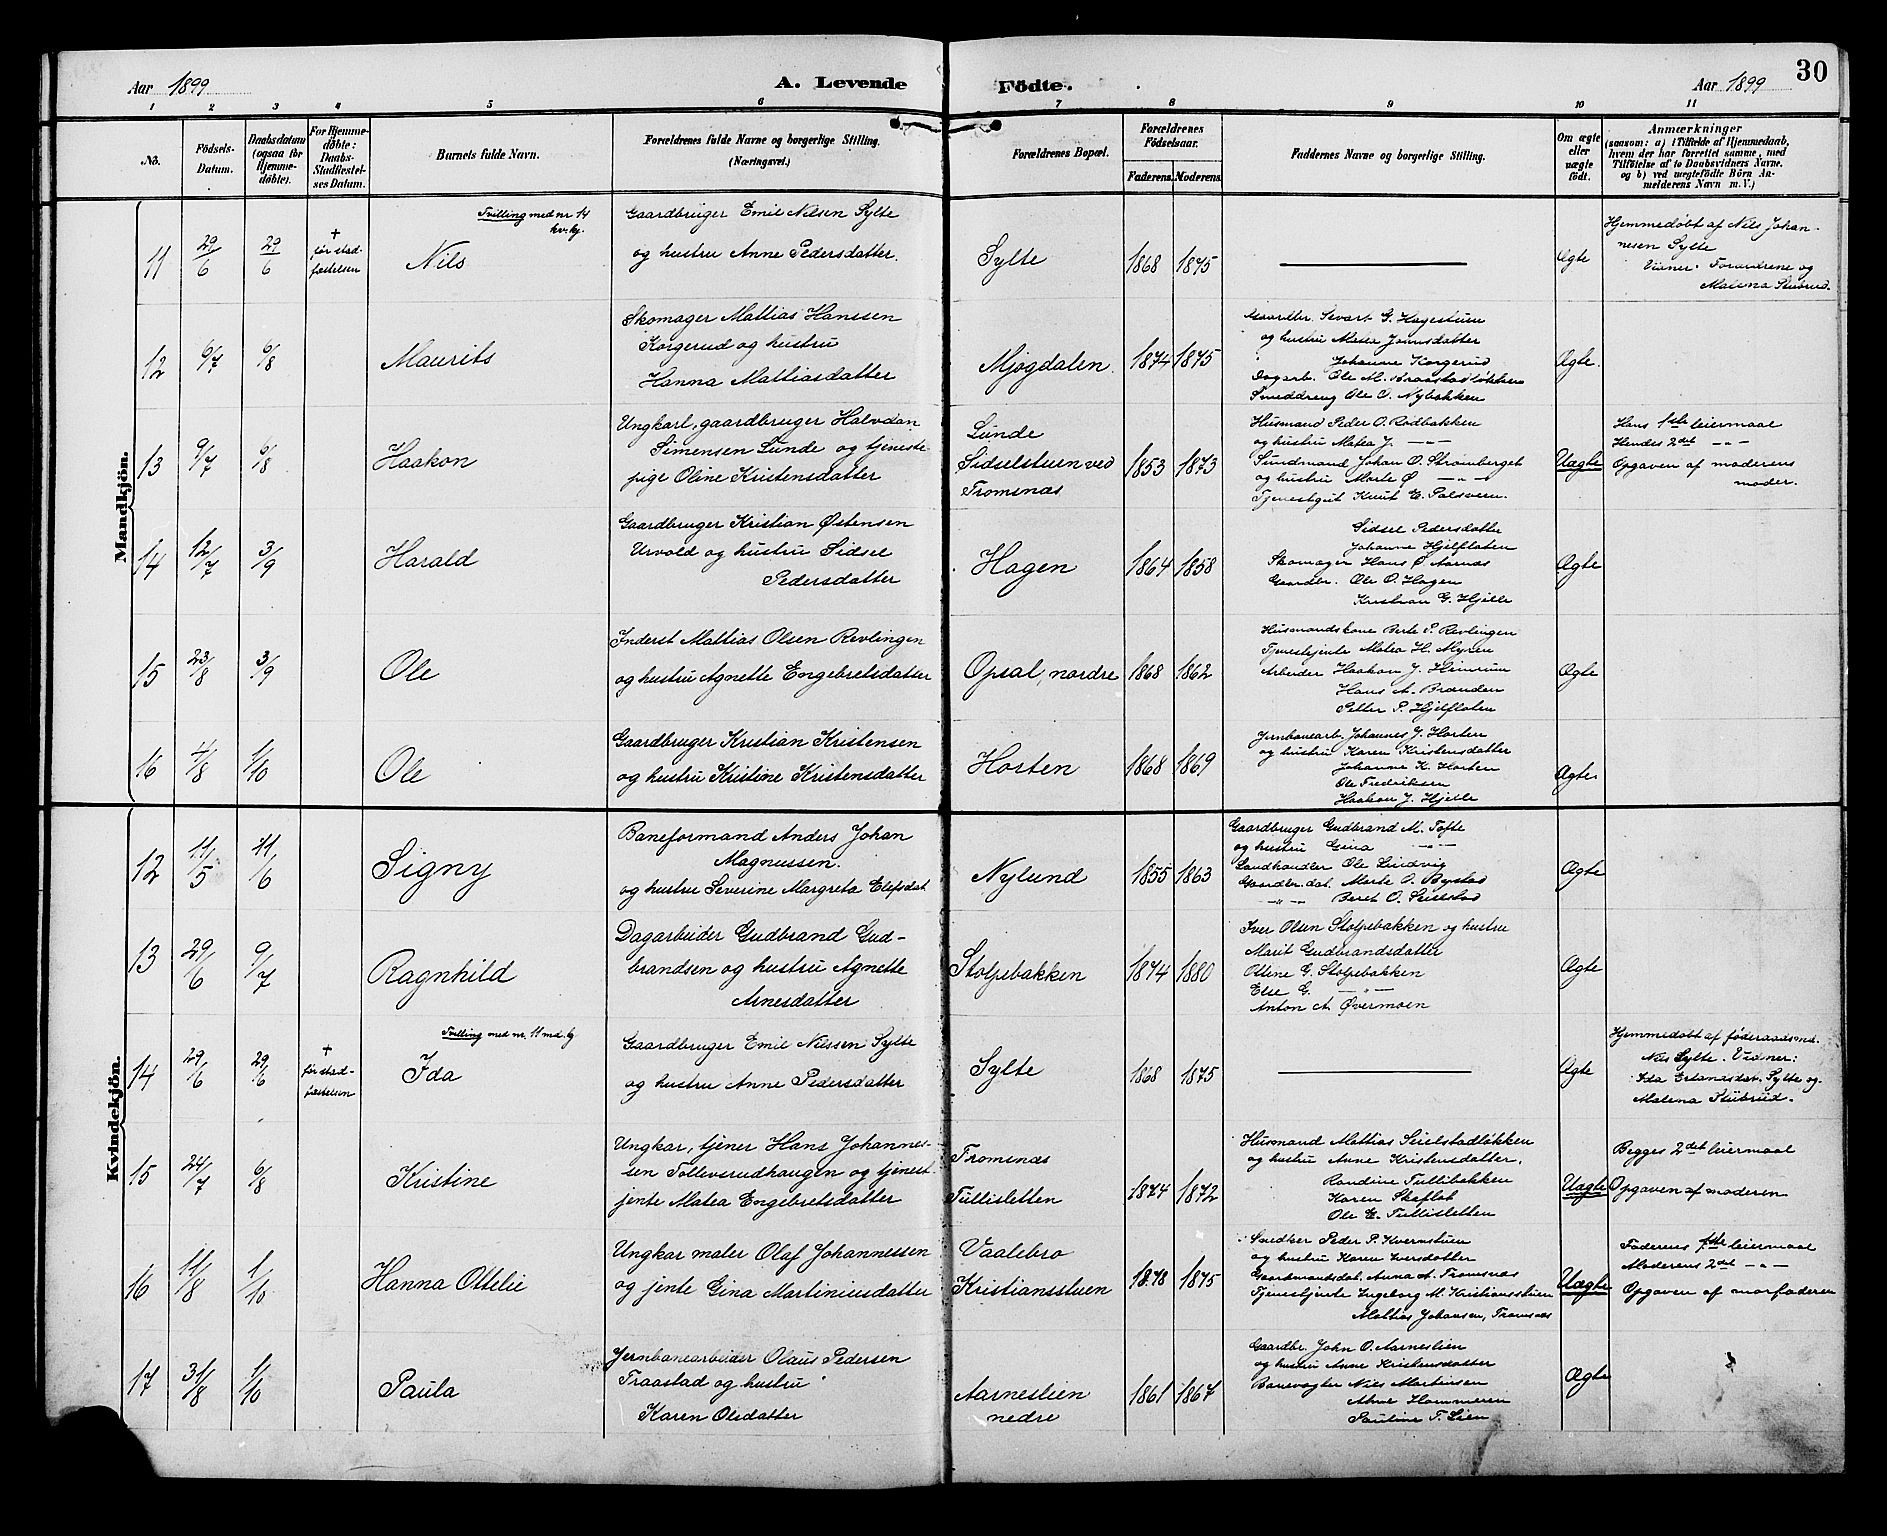 Aar 1899 A. Levende Fødte. Aar 1899 30
1 2 3 4 5 6 7 8 9 10 11
No. Fødsels-Datum. Daabsdatum (ogsaa for Hjemme-døbte). For Hjemme-døbte: Daabs-Stadfæstel-ses Datum. Barnets fulde Navn. Forældrenes fulde Navne og borgerlige Stilling. (Næringsvei.) Forældrenes Bopæl. Forældrenes Fødselsaar. Faderens. Moderens. Faddernes Navne og borgerlige Stilling. Om ægte eller uægte født. Anmærkninger (saasom: a) i Tilfælde af Hjemmedaab, hvem der har forrettet samme, med Tilføielse af to Daabsvidners Navne, og b) ved uægtefødte Børn An-melderens Navn m. V.)
Mandkjön.
11 29/6 29/6 + før stad-fæstelsen
Tvilling med nr 14 kv. kj.
Nils
Gaardbruger Emil Nilsen Sylte
og hustru Anne Pedersdatter.
Sylte 1868 1875 Ægte
Hjemmedøbt af Nils Johan-
nesen Sylte
Vidner: Forældrene og
Malena Stubrud.
12 6/7 6/8 Maurits
Skomager Mattias Hanssen
Korgerud og hustru
Hanna Mattiasdatter
Mjøgdalen. 1874 1875
Gaardbr. Sevart G. Hagestuen
og hustru Matea Jonnsdatter
Johanne Korgerud
Dagarb. Ole M. Kraastadløkken
Smeddreng Ole O. Nybakken
Ægte.
13 9/7 6/8 Haakon
Ungkarl, gaardbruger Halvdan
Simensen Lunde og tjeneste-
pige Oline Kristensdatter
Lunde
Sidselstuen ved
Tromsnæs
1853 1873
Husmand Peder O. Rødbakken
og hustru Matea J. — " —
Sundmand Johan O. Strømberget
og hustru Marte Ø — " —
Tjenestgut Knut E. Palsveen.
Uægte
Hans 1ste leiermaal
Hendes 2det — " —
Opgaven af moderens
moder.
14 12/7 3/9 Harald
Gaardbruger Kristian Østensen
Urvold og hustru Sidsel
Pedersdatter
Hagen 1864 1858
Sidsel Pedersdatter
Johanne Hjelfloten
Skomager Hans Ø. Aarnæs
Gaardbr. Ole O. Hagen
Kristian G. Hjelle
Ægte
15 23/8 3/9 Ole
Inderst Mattias Olsen Revlingen
og hustru Agnette Engebretsdatter
Opsal, nordre 1868 1862
Husmandskone Berte P. Revlingen
Tjenestejente Matea H. Myren
Arbeider Haakon J. Heimrum
Hans A. Brænden
Petter P. Hjelfloten
Ægte
16 4/8 1/10 Ole
Gaardbruger Kristian Kristensen
og hustru Kristine Kristensdatter
Horten 1868 1869
Jernbanearb. Johannes J. Horten
og hustru Karen Kristensdatter
Johanne K. Horten
Ole Fredriksen
Haakon J. Hjelle
Ægte
Kvindekjön.
12 11/5 11/6 Signy
Baneformand Anders Johan
Magnussen.
og hustru Severine Margrete Elefsdat.
Nylund 1855 1863
Gaardbruger Gudbrand M. Tofte
og hustru Gina — " —
Landhandler Ole Lindvig
Gaardbr. dat. Marte O. Bystad
— " — Beret O. Seielstad
Ægte
13 29/6 9/7 Ragnhild
Dagarbeider Gudbrand Gud-
brandsen og hustru Agnette
Arnesdatter
Stolpebakken 1874 1880
Iver Olsen Stolpebakken og hustru
Marit Gudbrandsdatter
Oline G. Stolpebakken
Else G. — " —
Anton A. Øvermoen
Ægte
14 29/6 29/6 + før stad-fæstelsen
Tvilling med nr. 11 md. kj
Ida
Gaardbruger Emil Nilssen Sylte
og hustru Anne Pedersdatter
Sylte 1868 1875 Ægte
Hjemmedøbt af føderaadsmd.
Nils Sylte. Vidner:
Ida Erlandsdat. Sylte og
Malena Stubrud.
15 24/7 6/8 Kristine
Ungkar, tjener Hans Johannes-
sen Tollevsrudhaugen og tjenest-
jente Matea Engebretsdatter
Tromsnæs
Tullisletten
1874 1872
Husmand Mattias Seielstadløkken
og hustru Anne Kristensdatter.
Randine Tullibakken
Karen Skeflot
Ole E. Tullisletten
Uægte
Begges 2det leiermaal
Opgaven af moderen
16 11/8 1/10 Hanna Ottelie
Ungkar maler Olaf Johannessen
og jente Gina Martiniusdatter
Vaalebro
Kristiansstuen
1878 1875
Snedker Peder P. Kvernstuen
og hustru Karen Iversdatter
Gaardmandsdat. Anna A. Tromsnæs
Tjenestejente Ingeborg M. Kristiansstuen
Mattias Johansen, Tromsnæs
Uægte
Faderens 1ste leiermaal
Moderens 2det — " —
Opgaven af morfaderen
17 31/8 1/10 Paula
Jernbanearbeider Olaus Pedersen
Traastad og hustru
Karen Olsdatter
Aarneslien
nedre
1861 1867
Gaardbr. John O. Aarneslien
og hustru Anne Kristensdatter
Banevogter Nils Martinsen
Anne Hammeren
Pauline T. Lien
Ægte